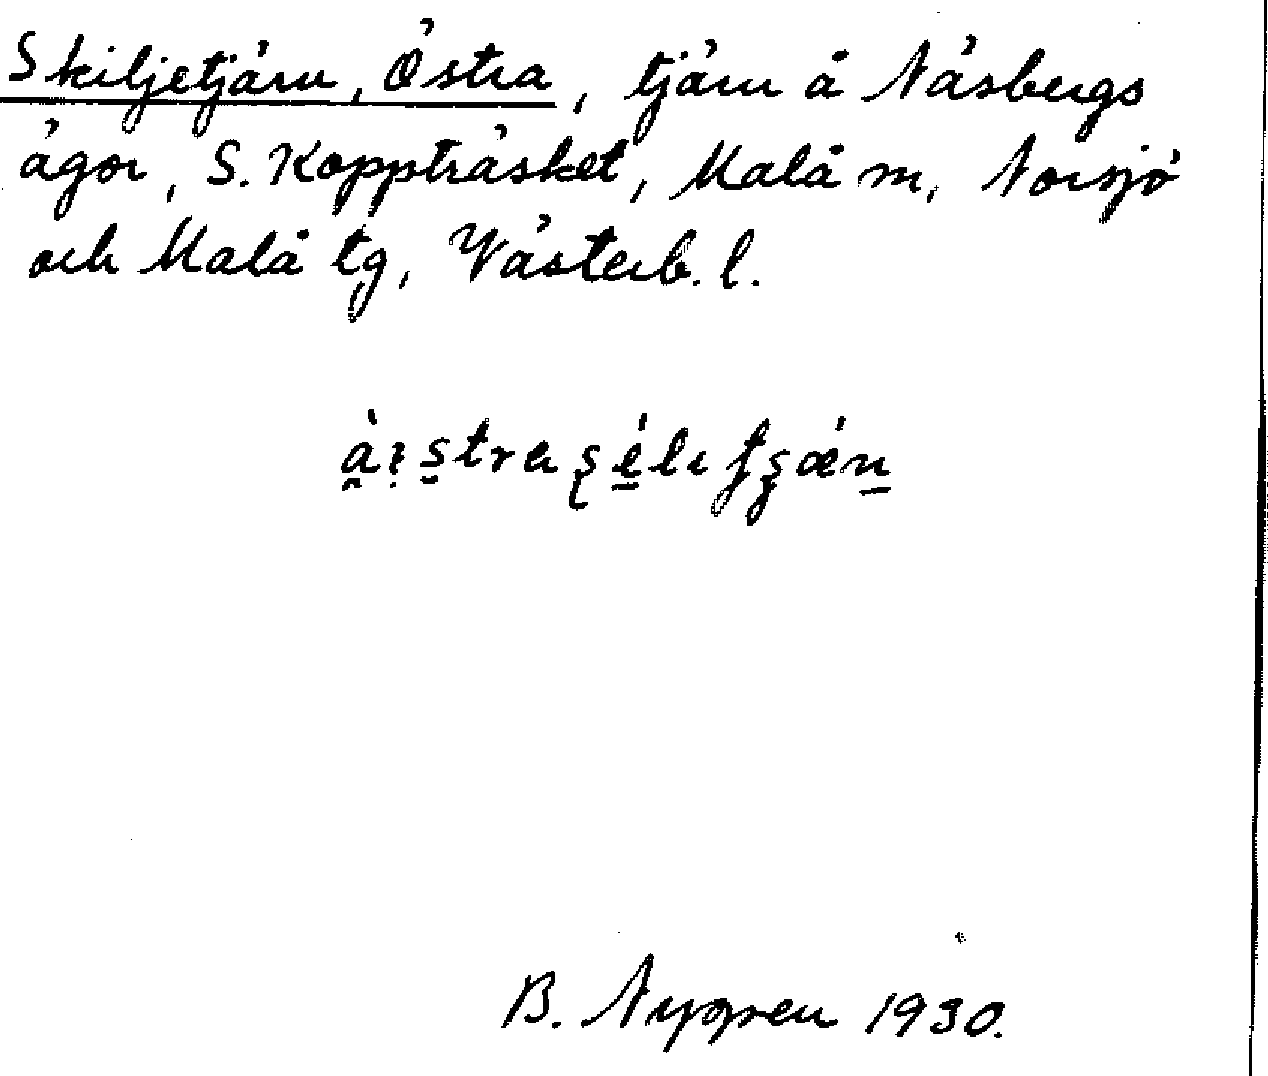 Skiljetjärn, Östra, tjärn å Näsbergs
ägor, S. Koppträsket, Malå sn, Norsjö
och Malå tg, Västerb. l.
B. Nygren 1930.